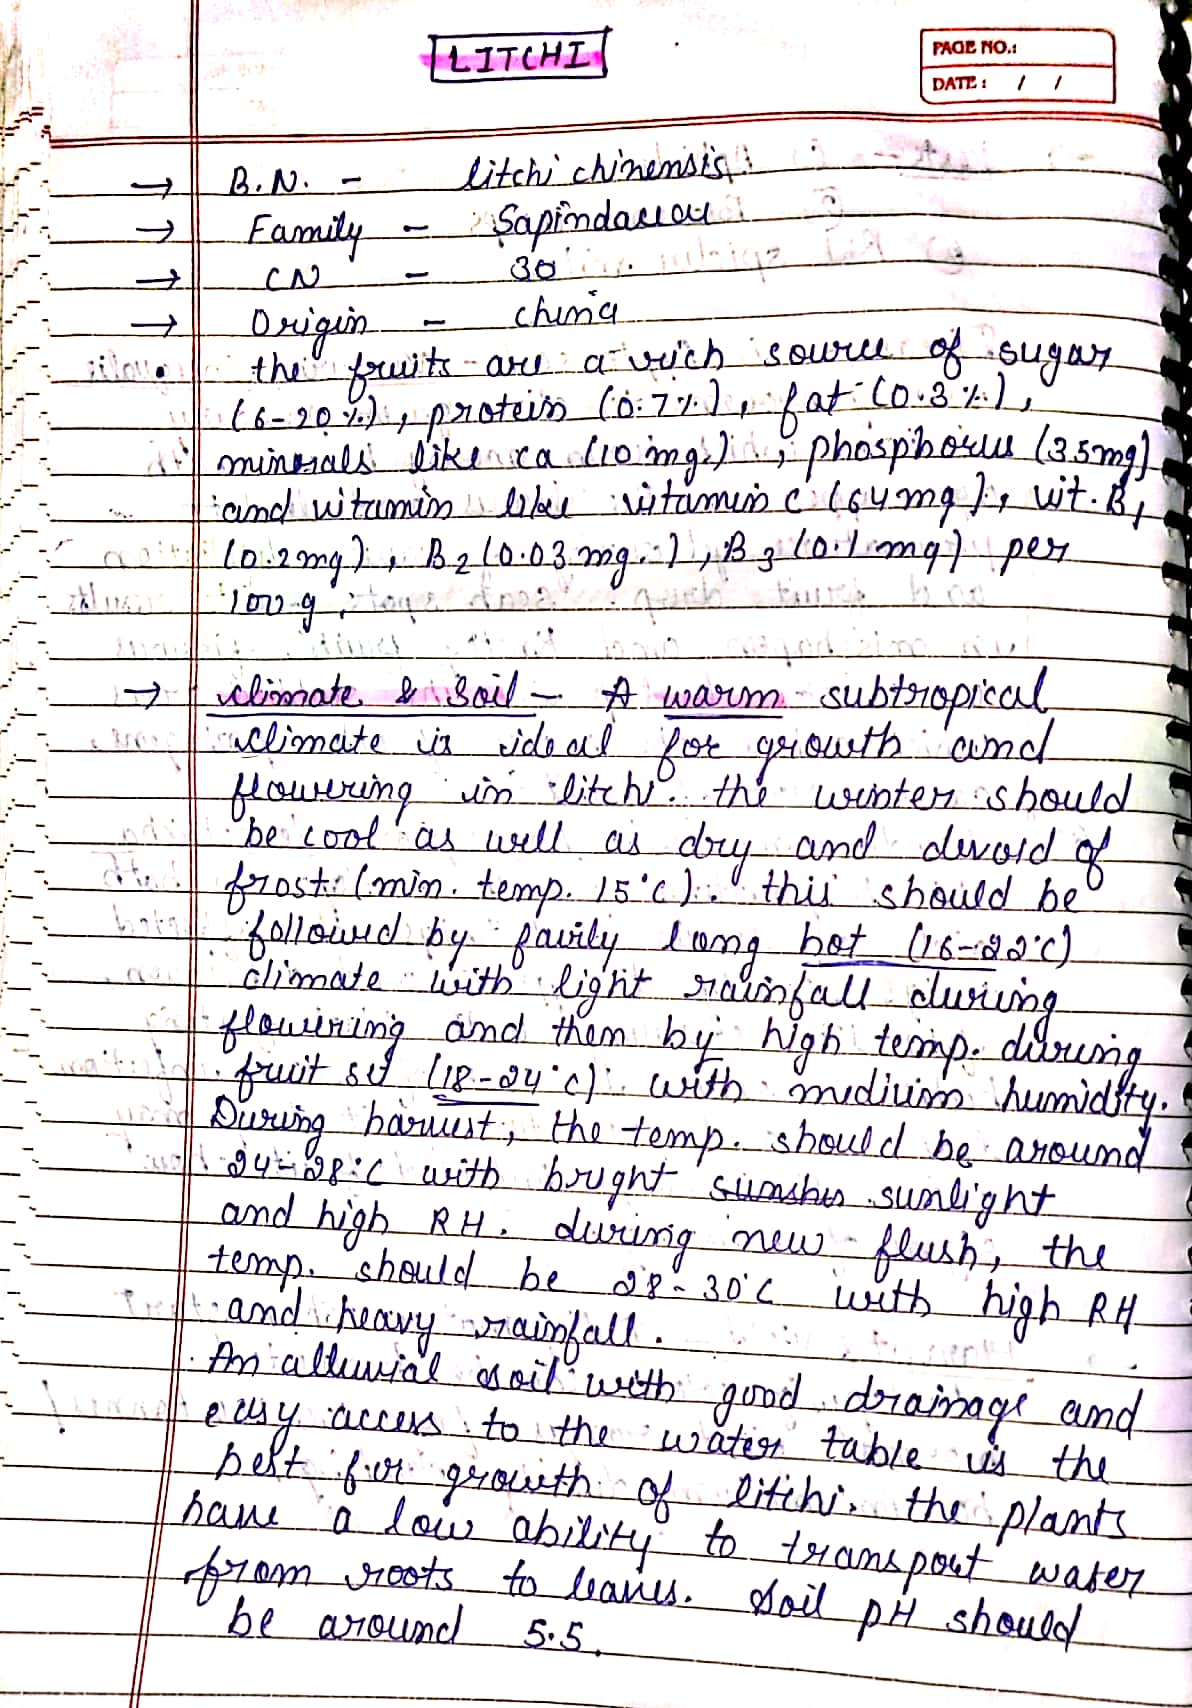 LITCHI
PAGE NO.:
DATE: / /
→ B.N. - litchi chinensis
→ Family - Sapindaceae
→ CN - 30
→ Origin - china
• the fruits are a rich source of sugar
(6-20%), protein (0.7%), fat (0.3%),
minerals like ca (10 mg.), phosphorus (35mg)
and vitamin like vitamin c (64mg), vit. B1
(0.2mg), B2 (0.03 mg.), B3 (0.1 mg) per
100 g.
→ climate & Soil - A warm subtropical
climate is ideal for growth and
flowering in litchi. the winter should
be cool as well as dry and devoid of
frost (min. temp. 15°C). this should be
followed by fairly long hot (16-22°C)
climate with light rainfall during
flowering and then by high temp. during
fruit set (18-24°C) with medium humidity.
During harvest, the temp. should be around
24-28°C with bright sunshin sunlight
and high RH. during new flush, the
temp. should be 28-30°C with high RH
and heavy rainfall.
An alluvial soil with good drainage and
easy access to the water table is the
best for growth of litchi. the plants
have a low ability to transport water
from roots to leaves. Soil pH should
be around 5.5.